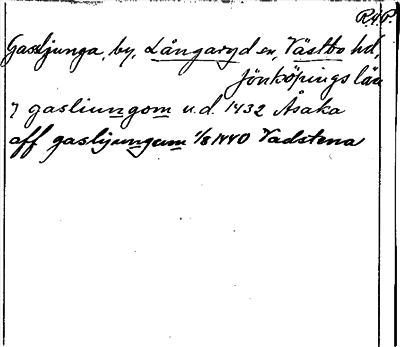 R.A.P.
Gassljunga, by, Långaryd sn, Västbo hd,
Jönköpings län
7 gasliungom u.d. 1432 Åsaka
aff gaslyungum 1/8 1440 Vadstena